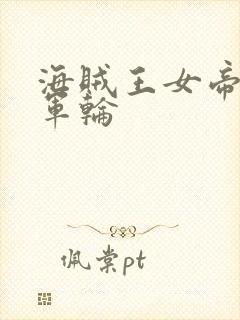 海贼王女帝
军轮
佩棠pt